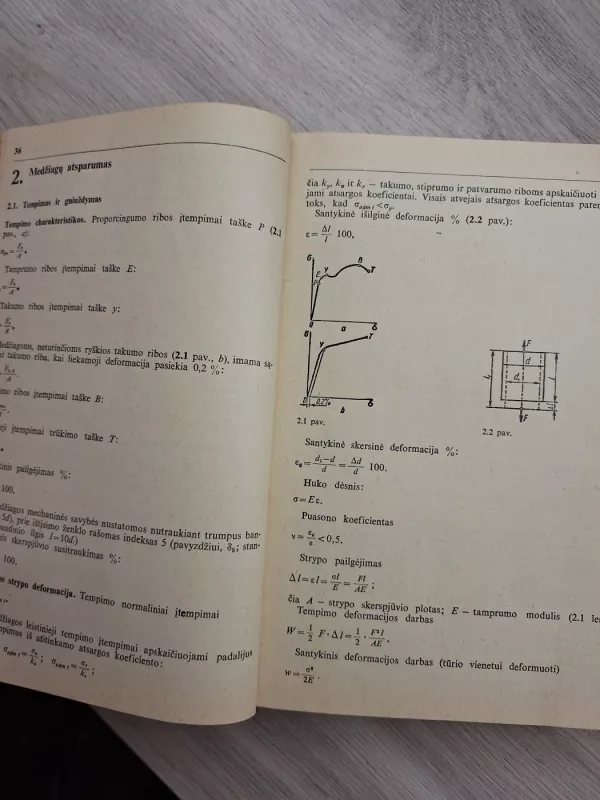 36
2. Medžiagų atsparumas
2.1. Tempimas ir gniuždymas
Tempimo charakteristikos. Proporcingumo ribos įtempimai taške P (2.1
pav., a):
Tamprumo ribos įtempimai taške E:
Takumo ribos įtempimai taške y:
neturinčioms ryškios takumo ribos (2.1 pav., b), imama są-
takumo riba, kai liekamoji deformacija pasiekia 0,2 %:
ribos įtempimai taške B:
įtempimai trūkimo taške T:
pailgėjimas %:
100.
mechaninės savybės nustatomos nutraukiant trumpus ban-
prie ištįsimo ženklo rašomas indeksas 5 (pavyzdžiui, δ5; stan-
ilgis l=10d.)
skerspjūvio susitraukimas %:
100.
strypo deformacija. Tempimo normaliniai įtempimai
leistinieji tempimo įtempimai apskaičiuojami padalijus
iš atitinkamo atsargos koeficiento:
čia ky, ku ir kv — takumo, stiprumo ir patvarumo riboms apskaičiuoti
jami atsargos koeficientai. Visais atvejais atsargos koeficientas
toks, kad σadm t < σy.
Santykinė išilginė deformacija % (2.2 pav.):
ε = Δl/l 100.
σ
P E y B T
0 a δ
σ
y T
0 0,2% b δ
2.1 pav.
F
d
l
F
2.2 pav.
Santykinė skersinė deformacija %:
εq = d1−d/d = Δd/d 100.
Huko dėsnis:
σ = Eε.
Puasono koeficientas
ν = εq/ε < 0,5.
Strypo pailgėjimas
Δl = εl = σl/E = Fl/AE ;
čia A — strypo skerspjūvio plotas; E — tamprumo modulis (2.1
Tempimo deformacijos darbas
W = 1/2 F·Δl = 1/2 · F²l/AE .
Santykinis deformacijos darbas (tūrio vienetui deformuoti)
w = σ²/2E .